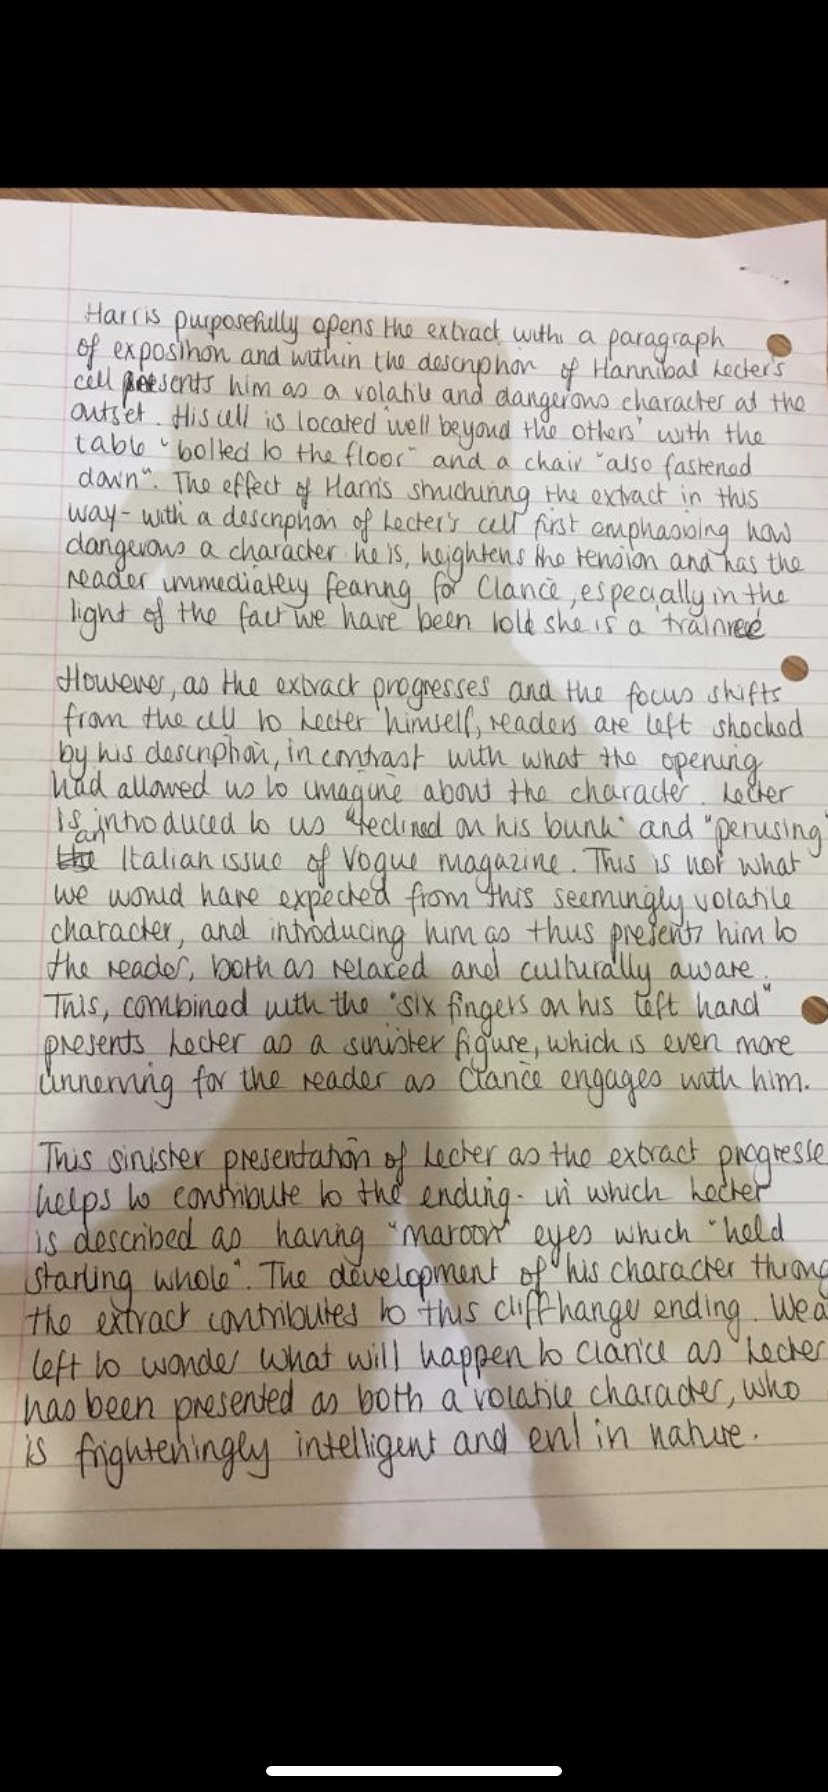 Harris purposefully opens the extract with a paragraph
of exposition and within the description of Hannibal Lecter's
cell presents him as a volatile and dangerous character at the
outset. His cell is located 'well beyond the others' with the
table "bolted to the floor" and a chair "also fastened
down". The effect of Harris structuring the extract in this
way - with a description of Lecter's cell first emphasising how
dangerous a character he is, heightens the tension and has the
reader immediately fearing for Clarice, especially in the
light of the fact we have been told she is a trainee
However, as the extract progresses and the focus shifts
from the cell to Lecter himself, readers are left shocked
by his description, in contrast with what the opening
had allowed us to imagine about the character. Lecter
is introduced to us "reclined on his bunk" and "perusing"
an Italian issue of Vogue magazine. This is not what
we would have expected from this seemingly volatile
character, and introducing him as thus presents him to
the reader, both as relaxed and culturally aware.
This, combined with the "six fingers on his left hand"
presents Lecter as a sinister figure, which is even more
unnerving for the reader as Clarice engages with him.
This sinister presentation of Lecter as the extract progresse
helps to contribute to the ending - in which Lecter
is described as having "maroon" eyes which "held
Starling whole". The development of his character throug
the extract contributes to this cliffhanger ending. We a
left to wonder what will happen to Clarice as Lecter
has been presented as both a volatile character, who
is frighteningly intelligent and evil in nature.